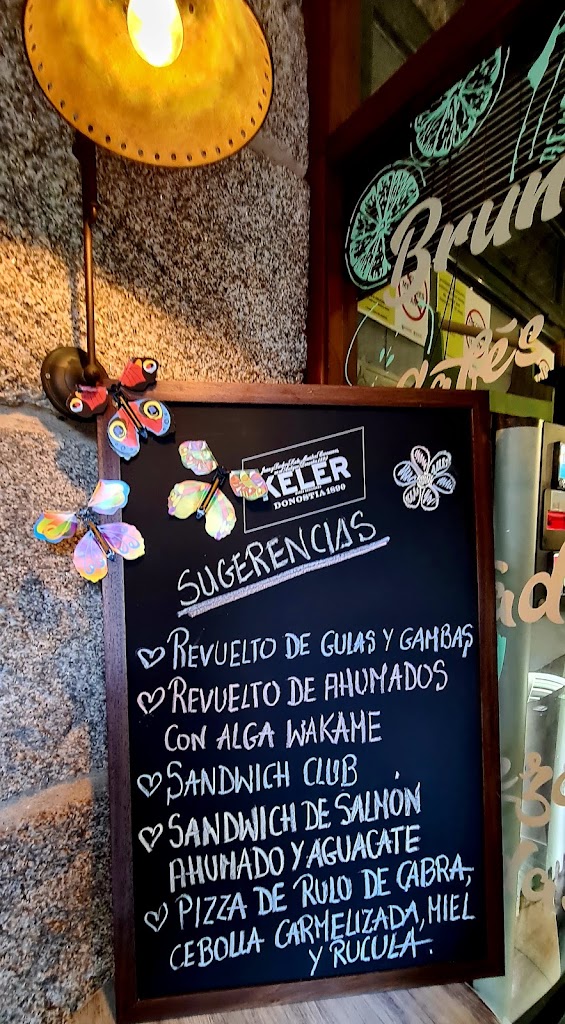 Brun
cafés
KELER
DONOSTIA 1890
SUGERENCIAS
REVUELTO DE GULAS Y GAMBAS
REVUELTO DE AHUMADOS
CON ALGA WAKAME
SANDWICH CLUB
SANDWICH DE SALMÓN
AHUMADO Y AGUACATE
PIZZA DE RULO DE CABRA,
CEBOLLA CARMELIZADA, MIEL
Y RUCULA.